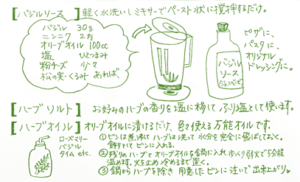 [バジルソース] 軽く水洗いしミキサーでペースト状に撹拌するだけ。
バジル 30g
ニンニク 2ヵ
オリーブオイル 100cc
塩 ひとつまみ
粉チーズ 少々
松の実・くるみ あれば
バジルソース
ピザに、
パスタに、
オリジナル
ドレッシングに。
[ハーブソルト] お好みのハーブの香りを塩に移して、ふり塩として使います。
[ハーブオイル] オリーブオイルに漬けるだけ、色々使える万能オイルです。
ローズマリー
バジル
タイム etc.
①ビンは煮沸し ハーブは洗って 水分を完全に飛ばしておく。
飾りとして ビンに入れる。
②残りのハーブとオリーブオイルを鍋に入れ 弱火で5分程
温める。火を止め 冷めるまで置く。
③鍋からハーブを除き 用意した ビンに 注いで 出来上がり。